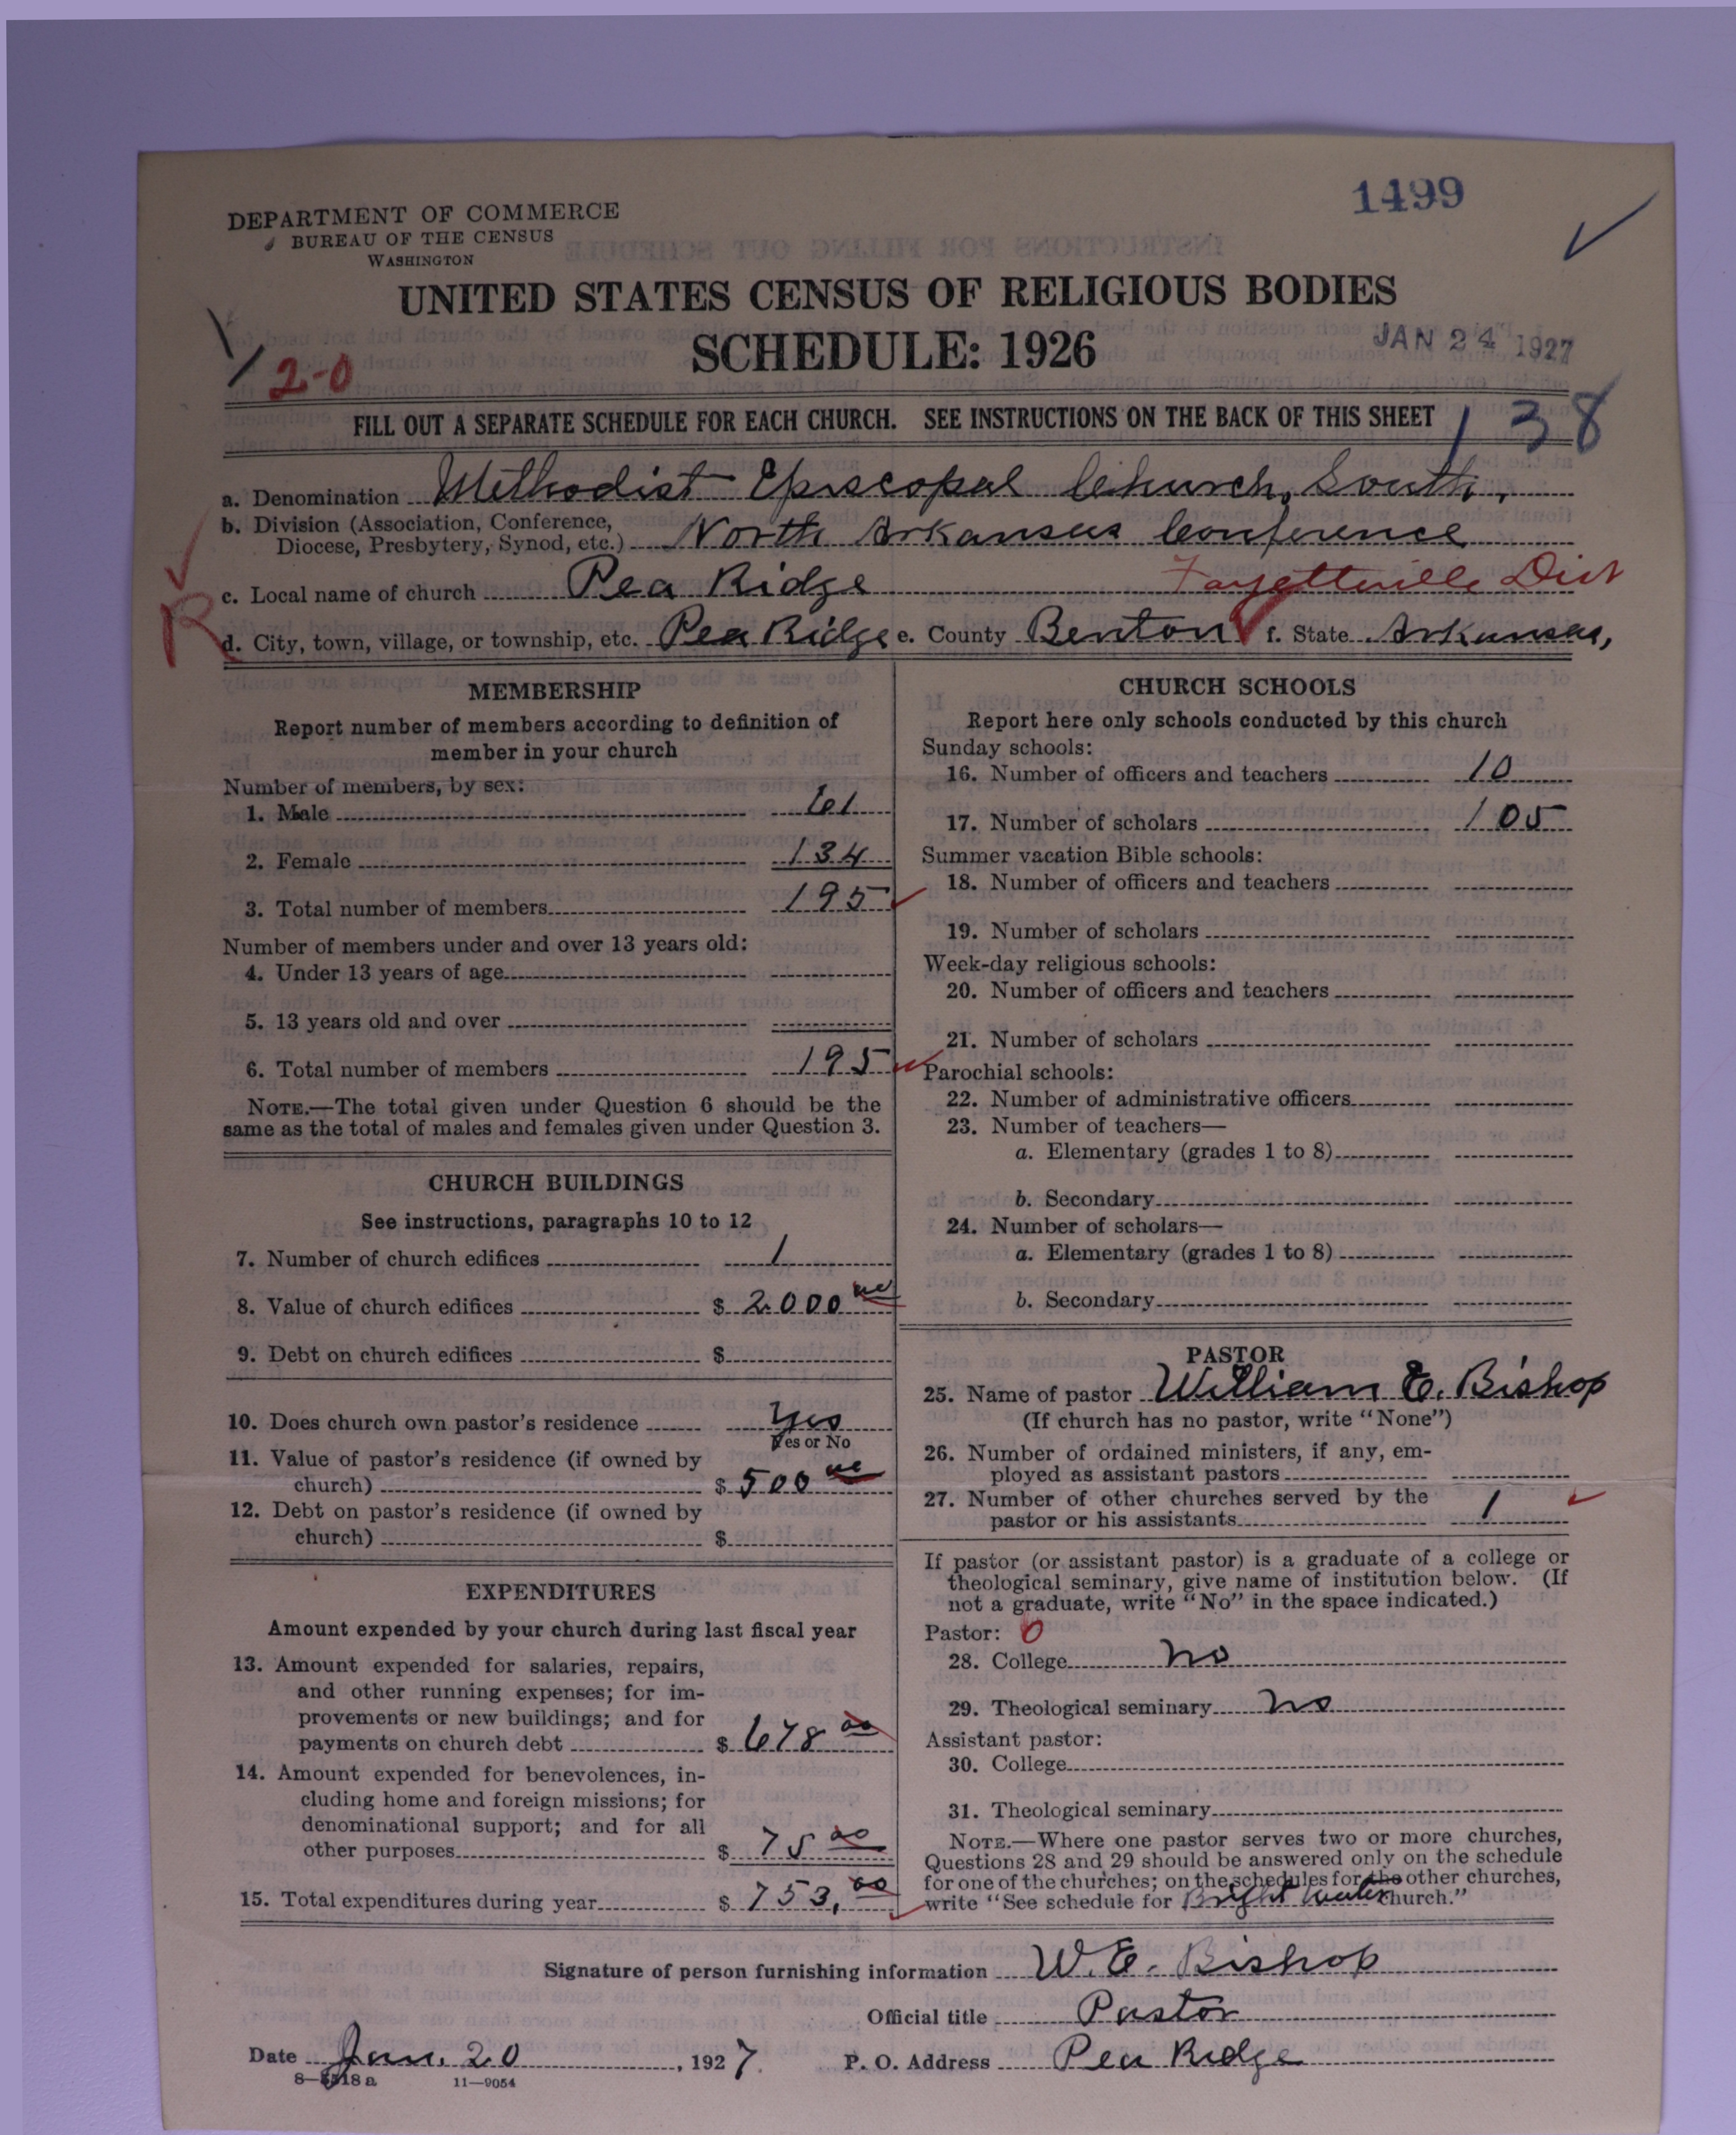 1499
DEPARTMENT OF COMMERCE
BUREAU OF THE CENSUS
WASHINGTON
UNITED STATES CENSUS OF RELIGIOUS BODIES
SCHEDULE: 1926
JAN 24 1927
2-0
FILL OUT A SEPARATE SCHEDULE FOR EACH CHURCH. SEE INSTRUCTIONS ON THE BACK OF THIS SHEET
138
a. Denomination Methodist Episcopal Church, South,
b. Division (Association, Conference,
Diocese, Presbytery, Synod, etc.) North Arkansas Conference
c. Local name of church Pea Ridge Fayetteville Dist
R
d. City, town, village, or township, etc. Pea Ridge e. County Benton f. State Arkansas,
MEMBERSHIP
Report number of members according to definition of
member in your church
Number of members, by sex:
1. Male 61
2. Female 134
3. Total number of members 195
Number of members under and over 13 years old:
4. Under 13 years of age
5. 13 years old and over
6. Total number of members 195
NOTE.—The total given under Question 6 should be the
same as the total of males and females given under Question 3.
CHURCH BUILDINGS
See instructions, paragraphs 10 to 12
7. Number of church edifices 1
8. Value of church edifices $ 2000
9. Debt on church edifices $
10. Does church own pastor's residence Yes
Yes or No
11. Value of pastor's residence (if owned by
church) $ 500
12. Debt on pastor's residence (if owned by
church) $
EXPENDITURES
Amount expended by your church during last fiscal year
13. Amount expended for salaries, repairs,
and other running expenses; for im-
provements or new buildings; and for
payments on church debt $ 678 00
14. Amount expended for benevolences, in-
cluding home and foreign missions; for
denominational support; and for all
other purposes $ 75 00
15. Total expenditures during year $ 753, 00
CHURCH SCHOOLS
Report here only schools conducted by this church
Sunday schools:
16. Number of officers and teachers 10
17. Number of scholars 105
Summer vacation Bible schools:
18. Number of officers and teachers
19. Number of scholars
Week-day religious schools:
20. Number of officers and teachers
21. Number of scholars
Parochial schools:
22. Number of administrative officers
23. Number of teachers—
a. Elementary (grades 1 to 8)
b. Secondary
24. Number of scholars—
a. Elementary (grades 1 to 8)
b. Secondary
PASTOR
25. Name of pastor William E. Bishop
(If church has no pastor, write "None")
26. Number of ordained ministers, if any, em-
ployed as assistant pastors
27. Number of other churches served by the
pastor or his assistants 1
If pastor (or assistant pastor) is a graduate of a college or
theological seminary, give name of institution below. (If
not a graduate, write "No" in the space indicated.)
Pastor: 0
28. College no
29. Theological seminary no
Assistant pastor:
30. College
31. Theological seminary
NOTE.—Where one pastor serves two or more churches,
Questions 28 and 29 should be answered only on the schedule
for one of the churches; on the schedules for the other churches,
write "See schedule for Bright Water church."
Signature of person furnishing information W. E. Bishop
Official title Pastor
Date Jan. 20, 1927. P. O. Address Pea Ridge
8—5518 a 11—9054